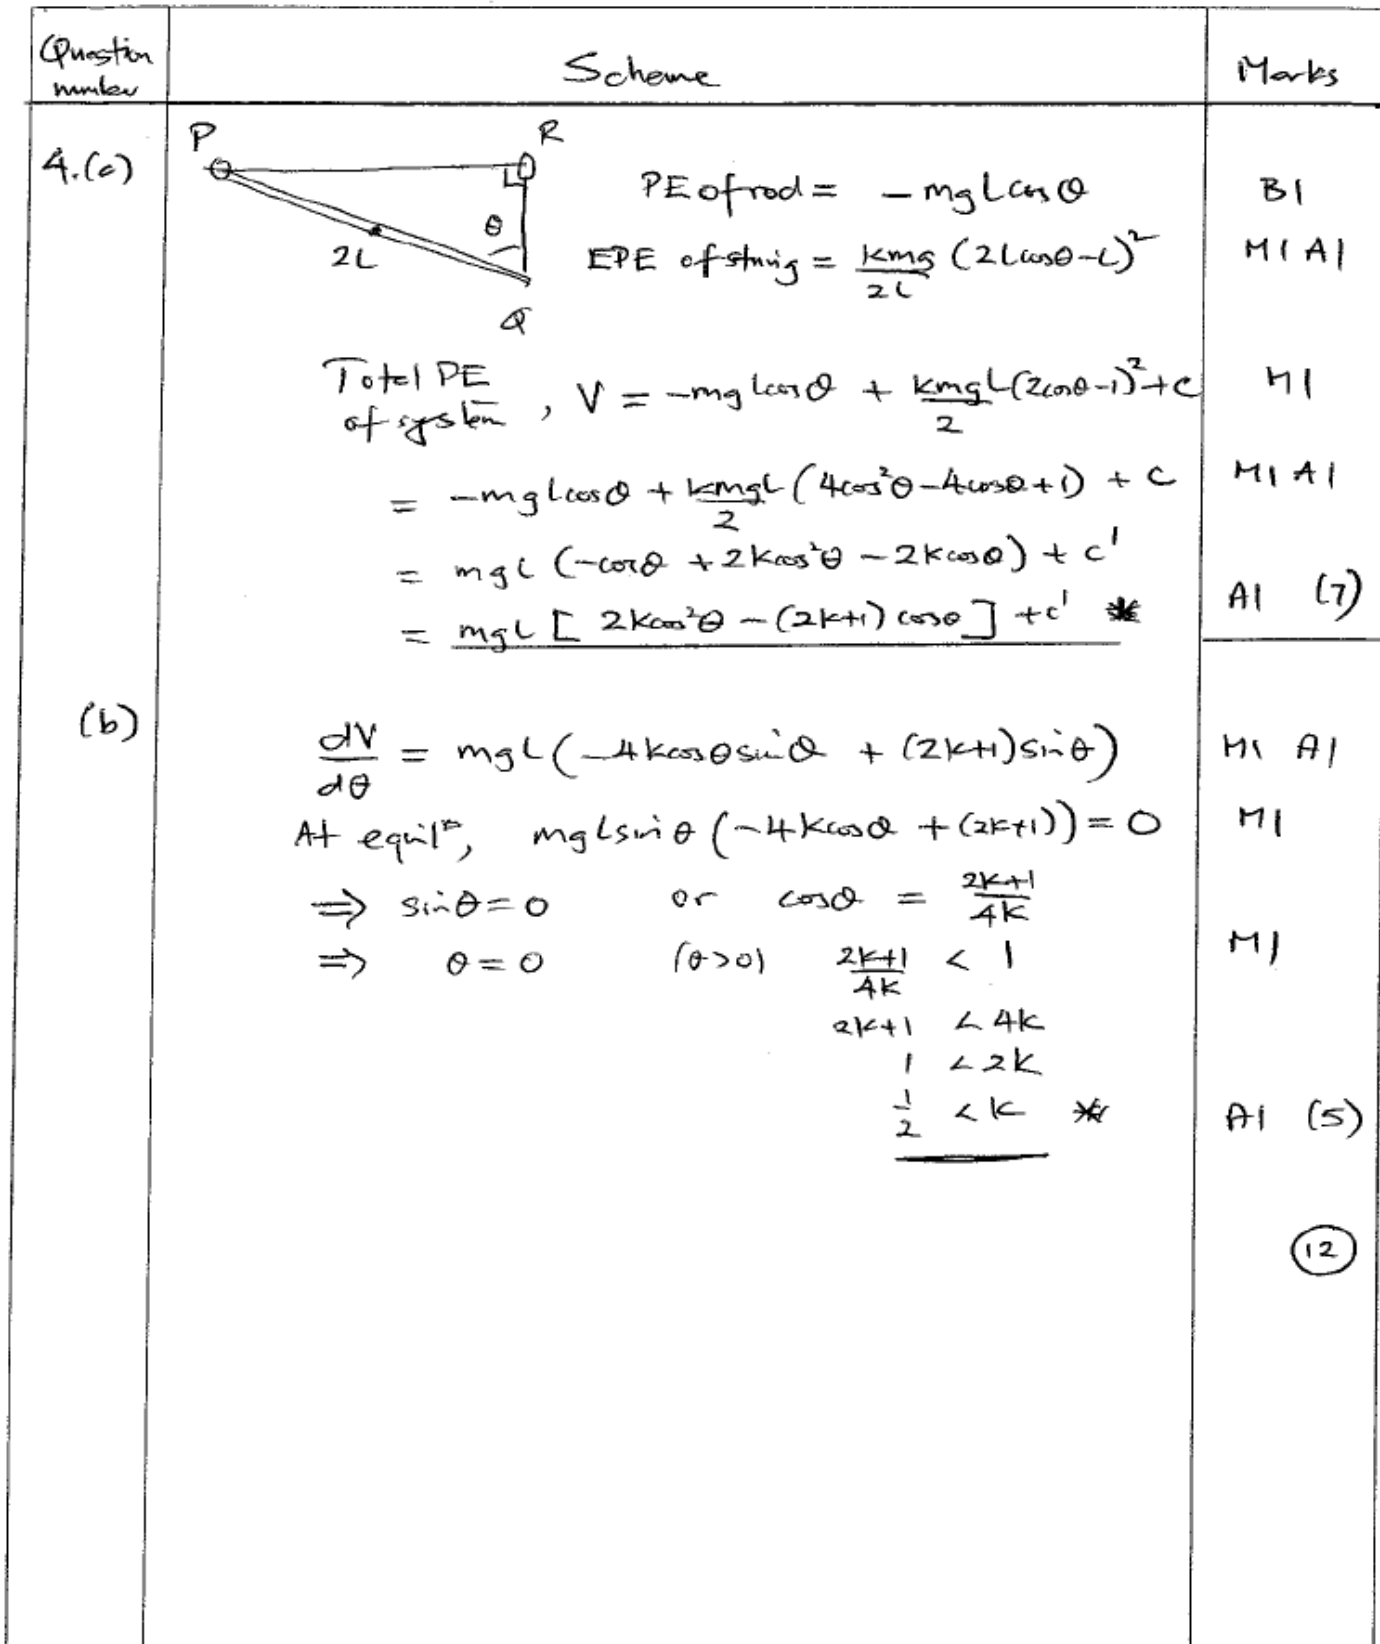 Question number Scheme Marks
4.(a) P R
PE of rod = − mgLcosθ B1
θ
2L
EPE of string = kmg/2L (2Lcosθ−L)² M1 A1
Q
Total PE of system, V = −mgLcosθ + kmgL/2 (2cosθ−1)² + c M1
= −mgLcosθ + kmgL/2 (4cos²θ−4cosθ+1) + c M1 A1
= mgL (−cosθ + 2kcos²θ − 2kcosθ) + c'
= mgL [ 2kcos²θ − (2k+1) cosθ ] + c' * A1 (7)
(b) dV/dθ = mgL(−4kcosθsinθ + (2k+1)sinθ) M1 A1
At equilᵐ, mgLsinθ (−4kcosθ + (2k+1)) = 0 M1
⇒ sinθ=0 or cosθ = 2k+1/4k
⇒ θ=0 (θ>0) 2k+1/4k < 1 M1
2k+1 < 4k
1 < 2k
1/2 < k * A1 (5)
12